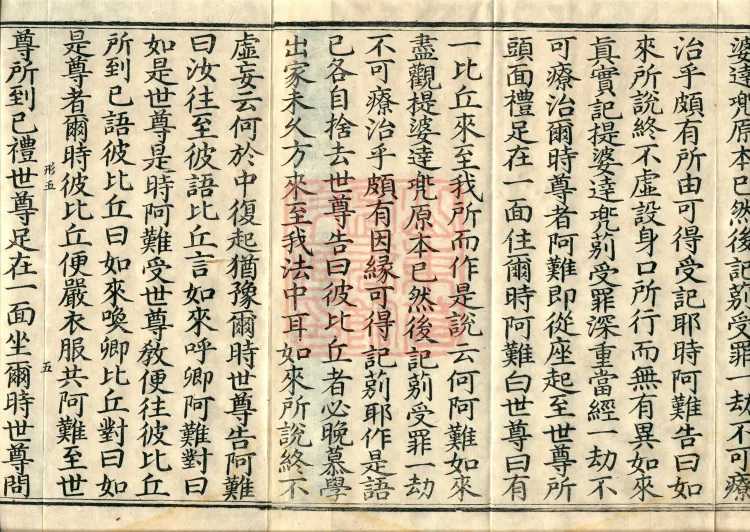 婆達兜原本已然後記别受罪一劫不可療
治乎頗有所由可得受記耶時阿難告曰如
來所說終不虛設身口所行而無有異如來
真實記提婆達兜别受罪深重當經一劫不
可療治爾時尊者阿難即從座起至世尊所
頭面禮足在一面住爾時阿難白世尊曰有
一比丘來至我所而作是說云何阿難如來
盡觀提婆達兜原本已然後記别受罪一劫
不可療治乎頗有因緣可得記别耶作是語
已各自捨去世尊告曰彼比丘者必晚慕學
出家未久方來至我法中耳如來所說終不
虛妄云何於中復起猶豫爾時世尊告阿難
曰汝往至彼語比丘言如來呼卿阿難對曰
如是世尊是時阿難受世尊教便往彼比丘
所到已語彼比丘曰如來喚卿比丘對曰如
是尊者爾時彼比丘便嚴衣服共阿難至世
形五 五
尊所到已禮世尊足在一面坐爾時世尊問